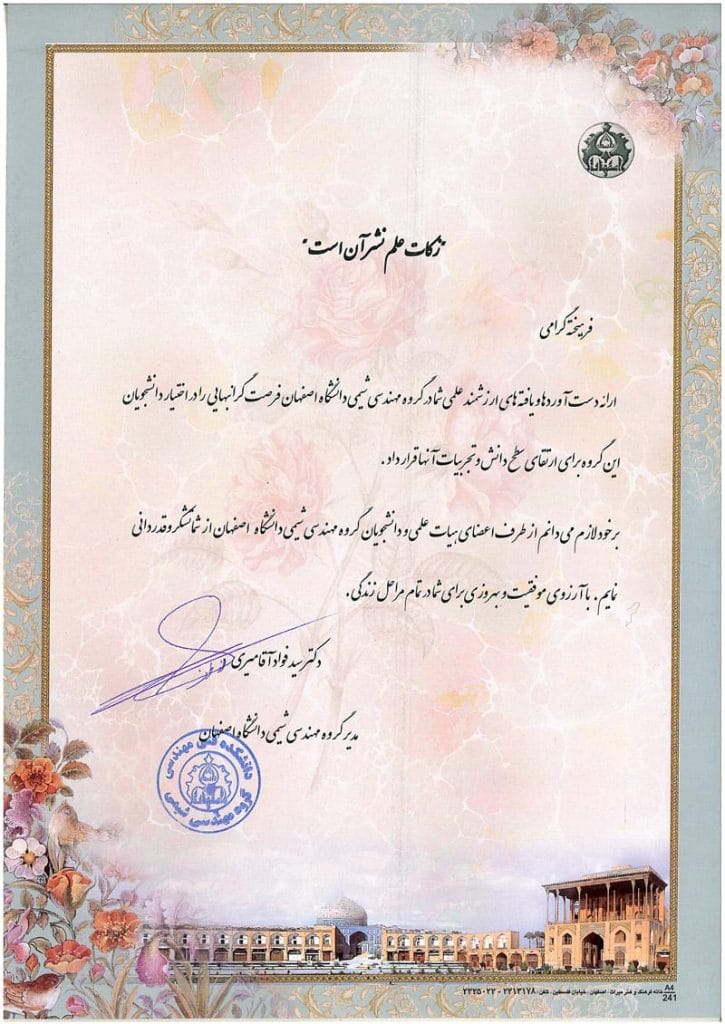 "زکات علم نشر آن است"
فرهیخته گرامی
ارائه دست آوردها و یافته های ارزشمند علمی شما در گروه مهندسی شیمی دانشگاه اصفهان فرصت گرانبهایی را در اختیار دانشجویان
این گروه برای ارتقای سطح دانش و تجربیات آنها قرار داد.
بر خود لازم می دانم از طرف اعضای هیات علمی و دانشجویان گروه مهندسی شیمی دانشگاه اصفهان از شما تشکر و قدردانی
نمایم. با آرزوی موفقیت و بهروزی برای شما در تمام مراحل زندگی.
دکتر سید فواد آقامیری
مدیر گروه مهندسی شیمی دانشگاه اصفهان
دانشکده فنی مهندسی
گروه مهندسی شیمی
خانه فرهنگ و هنر میراث - اصفهان - خیابان فلسطین - تلفن: ۲۲۱۳۱۷۸ - ۲۲۳۵۰۲۳
A4
241